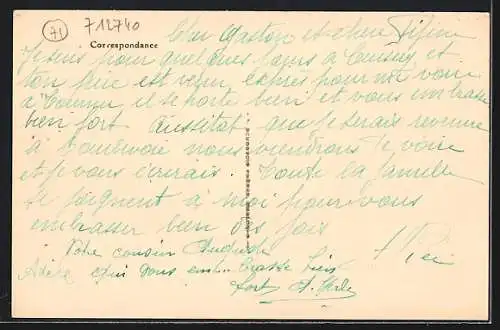 71 712740
Cher Gaston et chère Fifine
Correspondance
Je suis pour quelques jours à Cuisery et
ton père est venu exprès pour me voir
à il se porte bien et vous embrasse
bien fort Aussitôt que je serais revenue
à nous viendrons te voir
et je vous écrirais. Toute la famille
se joignent à moi pour vous
embrasser bien des fois
Votre cousin
Adèle qui vous embrasse bien
fort